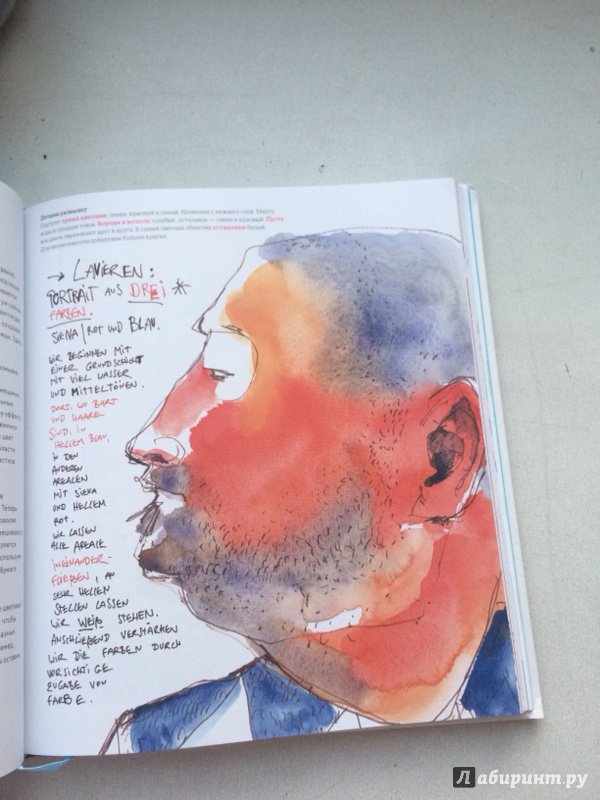 Делаем размывку
Портрет тремя цветами: сиена, красный и синий. Начинаем с нижнего слоя. Много
воды и средних тонов. Борода и волосы голубые, остальное — сиена и красный. Пусть
все цвета перетекают друг в друга. В самых светлых областях оставляем белый.
Для интенсивности добавляем больше краски
→ LAVIEREN:
PORTRAIT AUS DREI *
FARBEN.
SIENA/ROT UND BLAU.
WIR BEGINNEN MIT
EINER GRUNDSCHICHT
MIT VIEL WASSER
UND MITTELTÖNEN.
DORT, WO BART
UND HAARE
SIND, IN
HELLEM BLAU,
IN DEN
ANDEREN
AREALEN
MIT SIENA
UND HELLEM
ROT.
WIR LASSEN
ALLE AREALE
INEINANDER-
FLIEßEN, AN
SEHR HELLEN
STELLEN LASSEN
WIR WEIß STEHEN.
ANSCHLIEßEND VERSTÄRKEN
WIR DIE FARBEN DURCH
VORSICHTIGE
ZUGABE VON
FARBE.
Лабиринт.ру